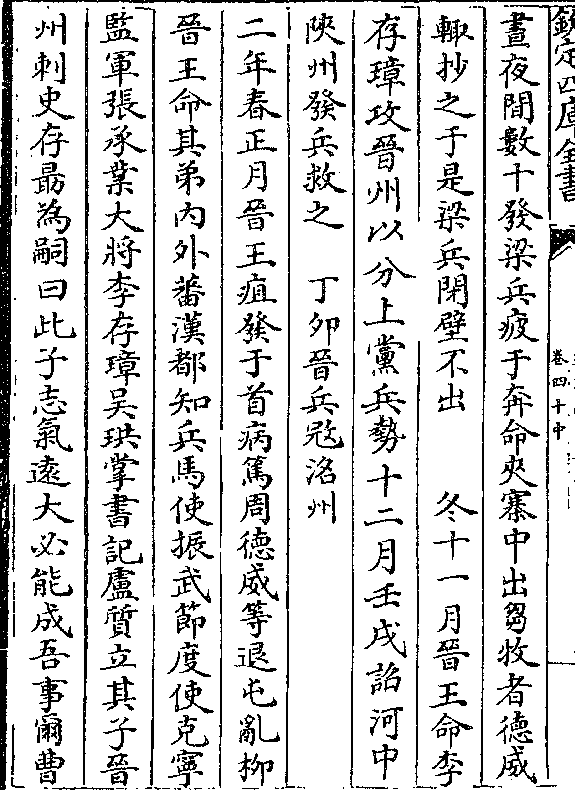 欽定四庫全書
卷四十中
晝夜間數十發梁兵疲于奔命夾寨中出芻牧者德威
輙抄之于是梁兵閉壁不出　冬十一月晉王命李
存璋攻晉州以分上黨兵勢十二月壬戌詔河中
陜州發兵救之　丁卯晉兵宼洺州
二年春正月晉王疽發于首病篤周德威等退屯亂柳
晉王命其弟内外蕃漢都知兵馬使振武節度使克寧
監軍張承業大將李存璋吳珙掌書記盧質立其子晉
州刺史存勗為嗣曰此子志氣遠大必能成吾事爾曹